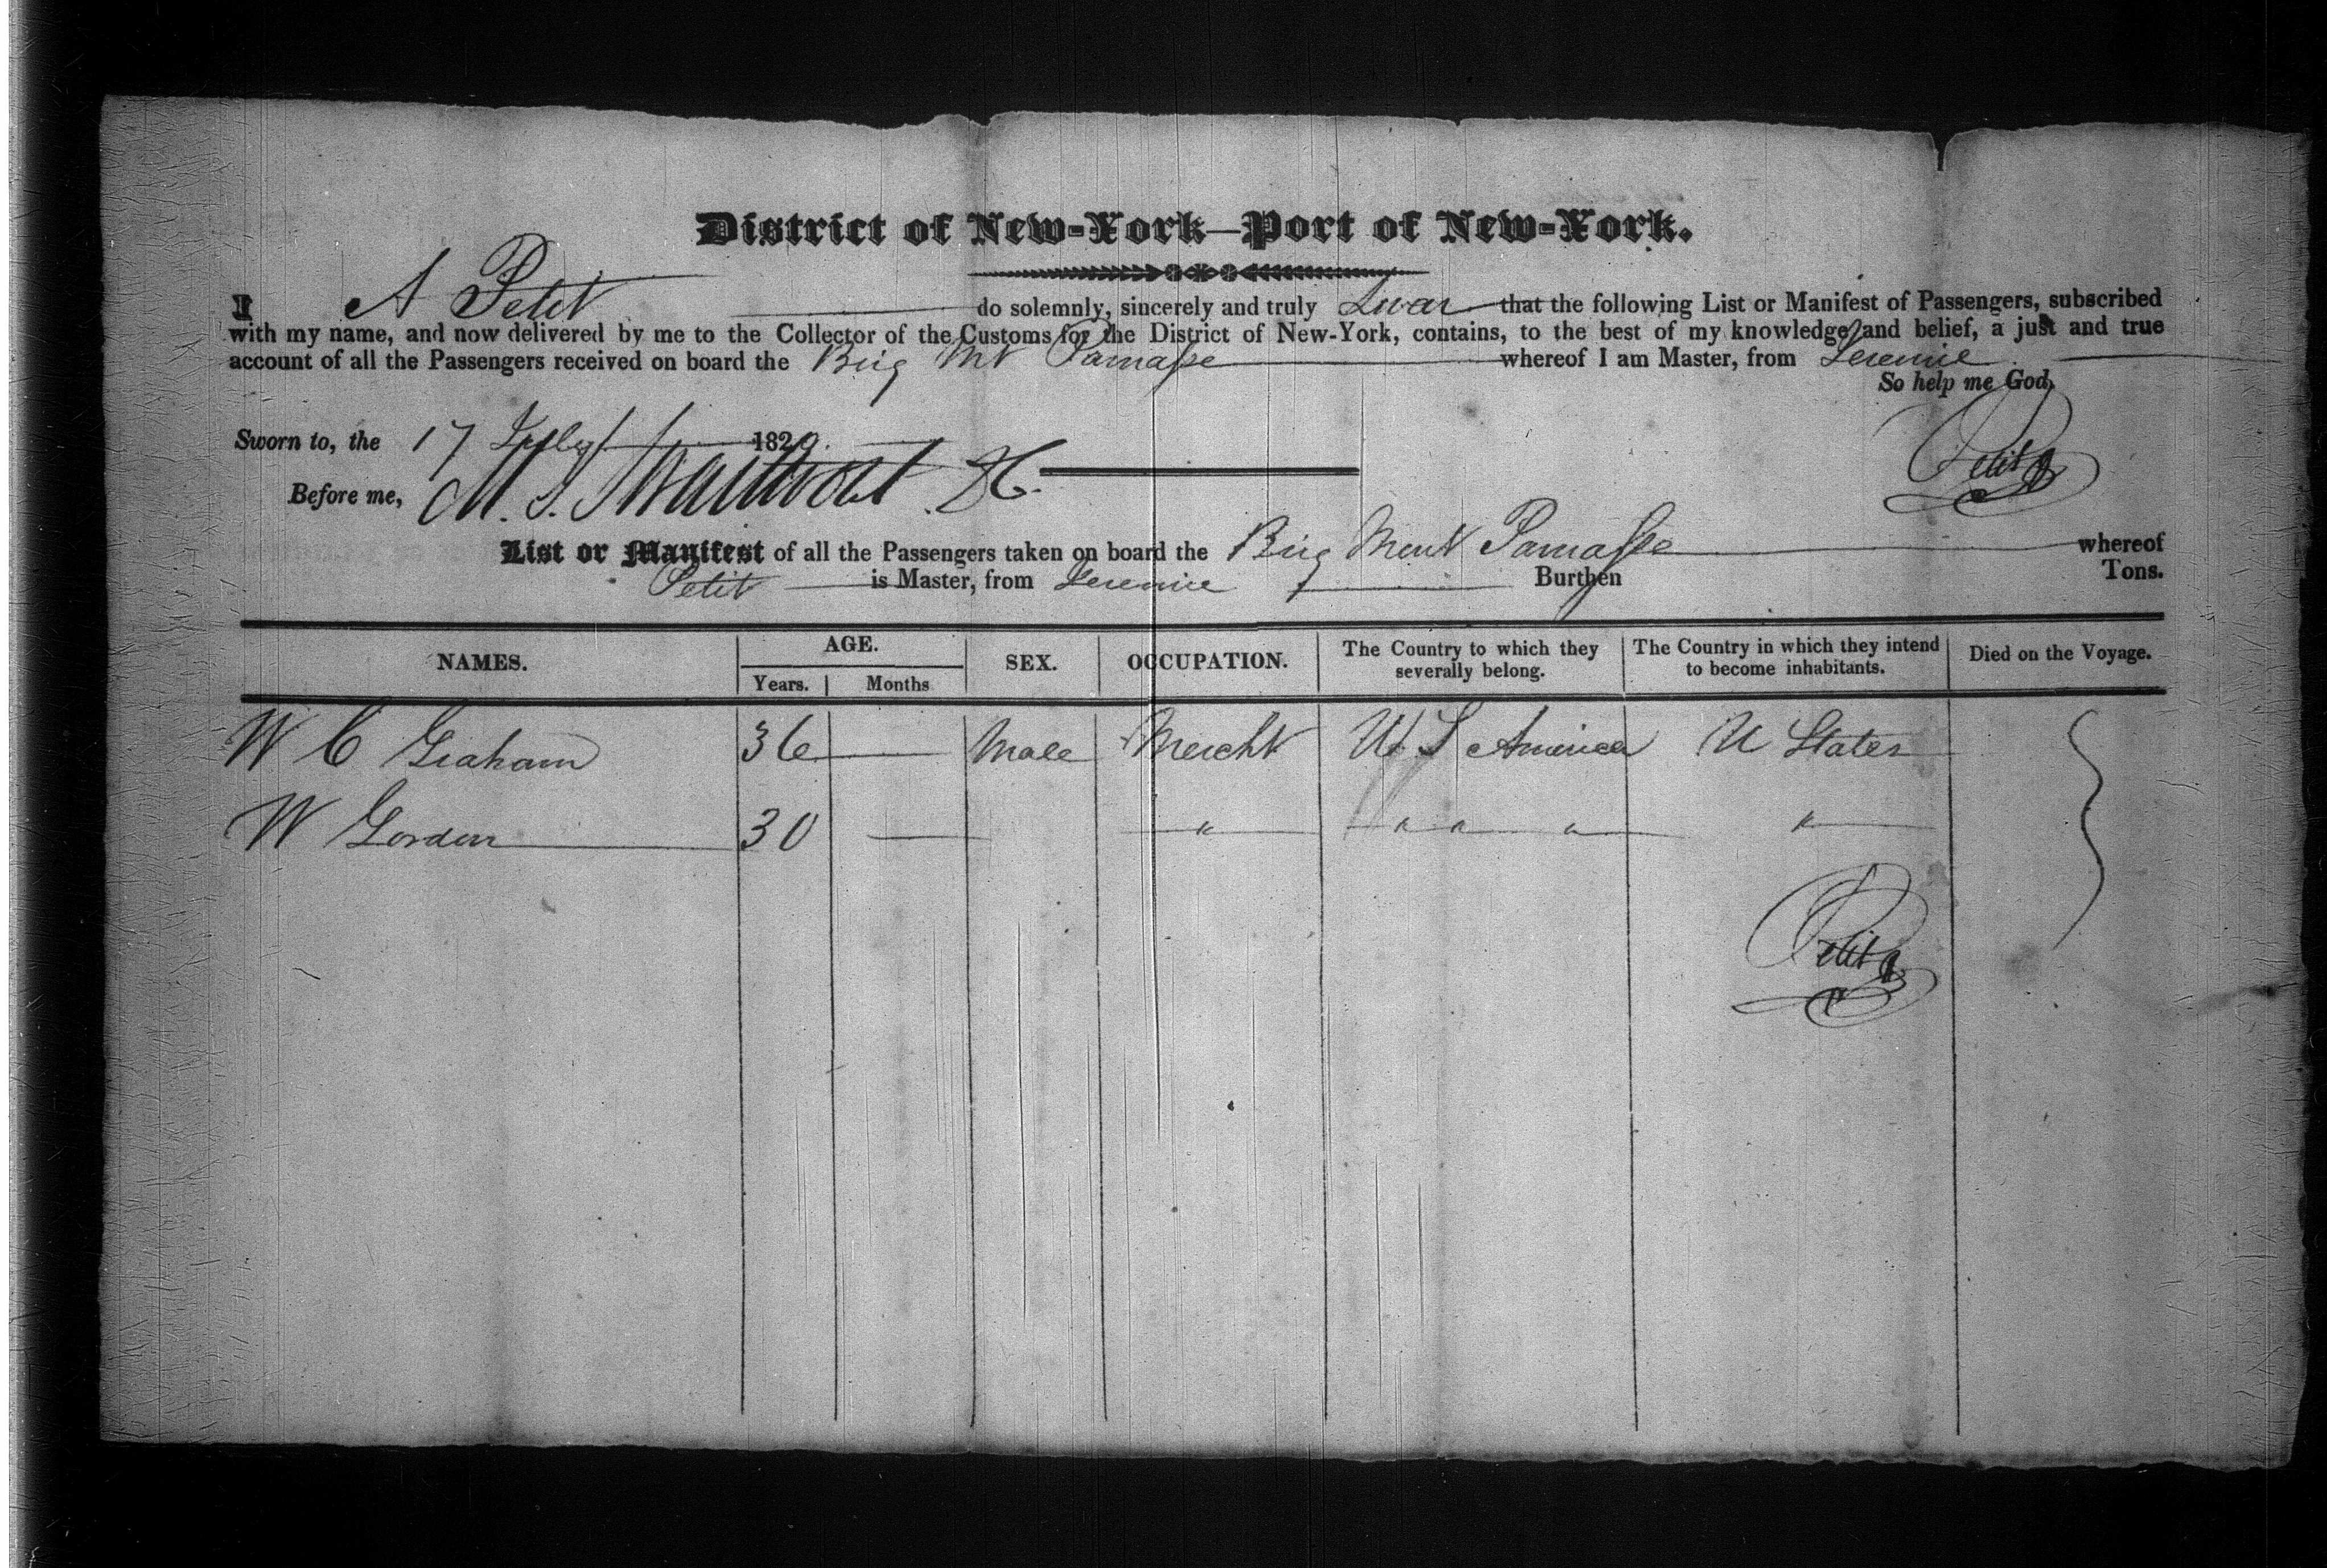 District of New-York—Port of New-York.
I A Petit do solemnly, sincerely and truly Swear that the following List or Manifest of Passengers, subscribed
with my name, and now delivered by me to the Collector of the Customs for the District of New-York, contains, to the best of my knowledge and belief, a just and true
account of all the Passengers received on board the Brig Mt Parnasse whereof I am Master, from Jeremie
So help me God.
Sworn to, the 17 July 1829.
Petit
Before me, M. S.
List or Manifest of all the Passengers taken on board the Brig Mont Parnasse whereof
Petit is Master, from Jeremie Burthen Tons.
NAMES. AGE. SEX. OCCUPATION. The Country to which they severally belong. The Country in which they intend to become inhabitants. Died on the Voyage.
Years. Months
W C Graham 36 — Male Mercht U S America U States
W Gordon 30 — " " " " "
Petit